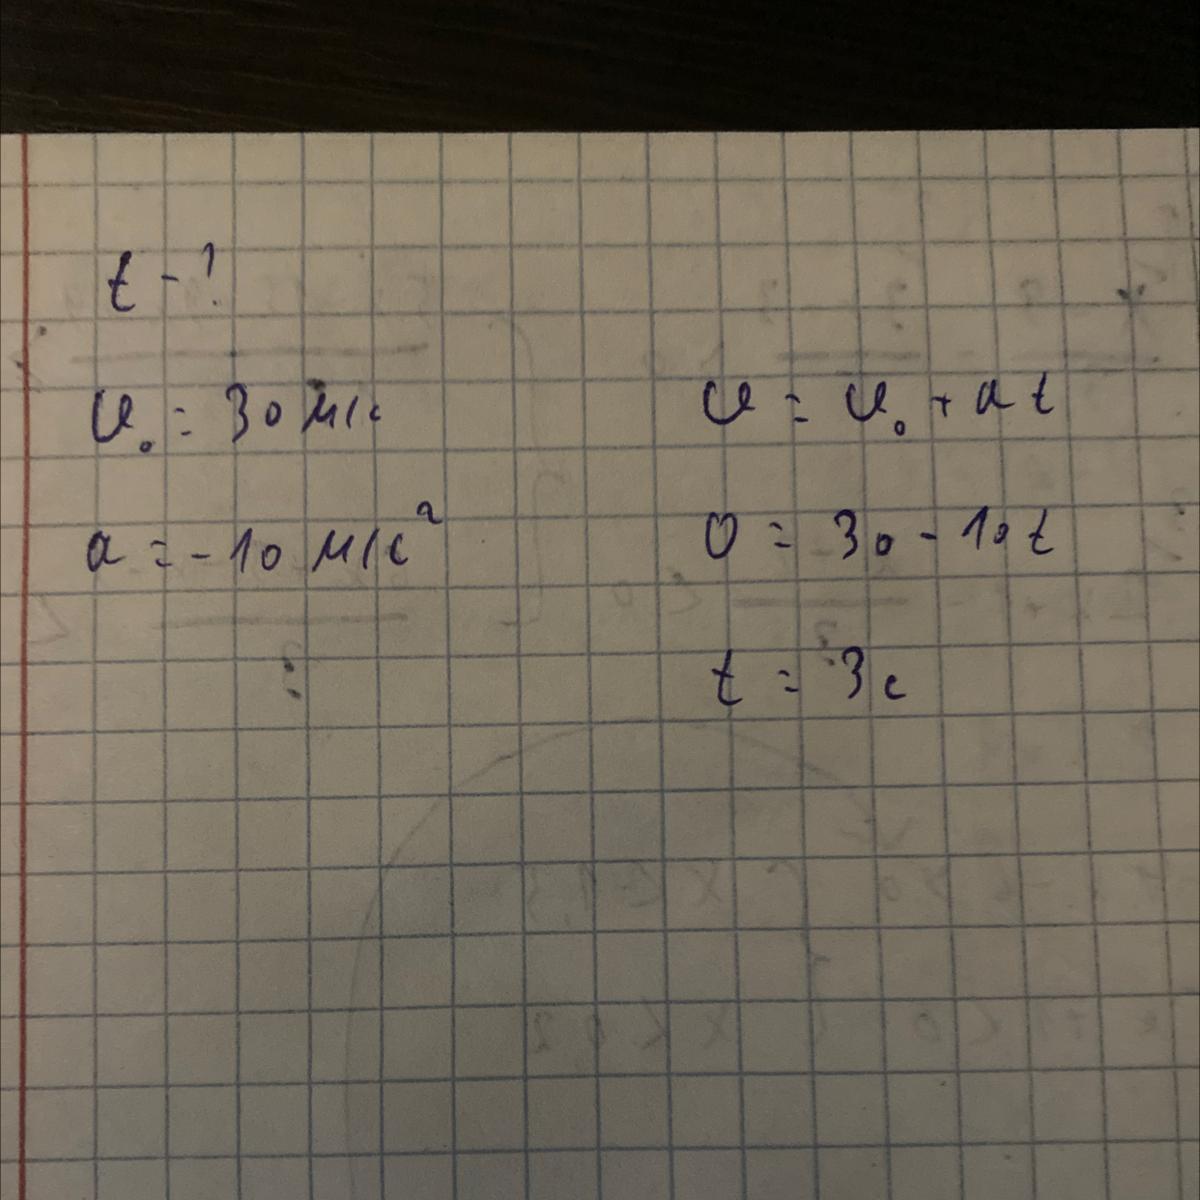 t - ?
υ₀ = 30 м/с
a = -10 м/с²
υ = υ₀ + at
0 = 30 - 10t
t = 3с